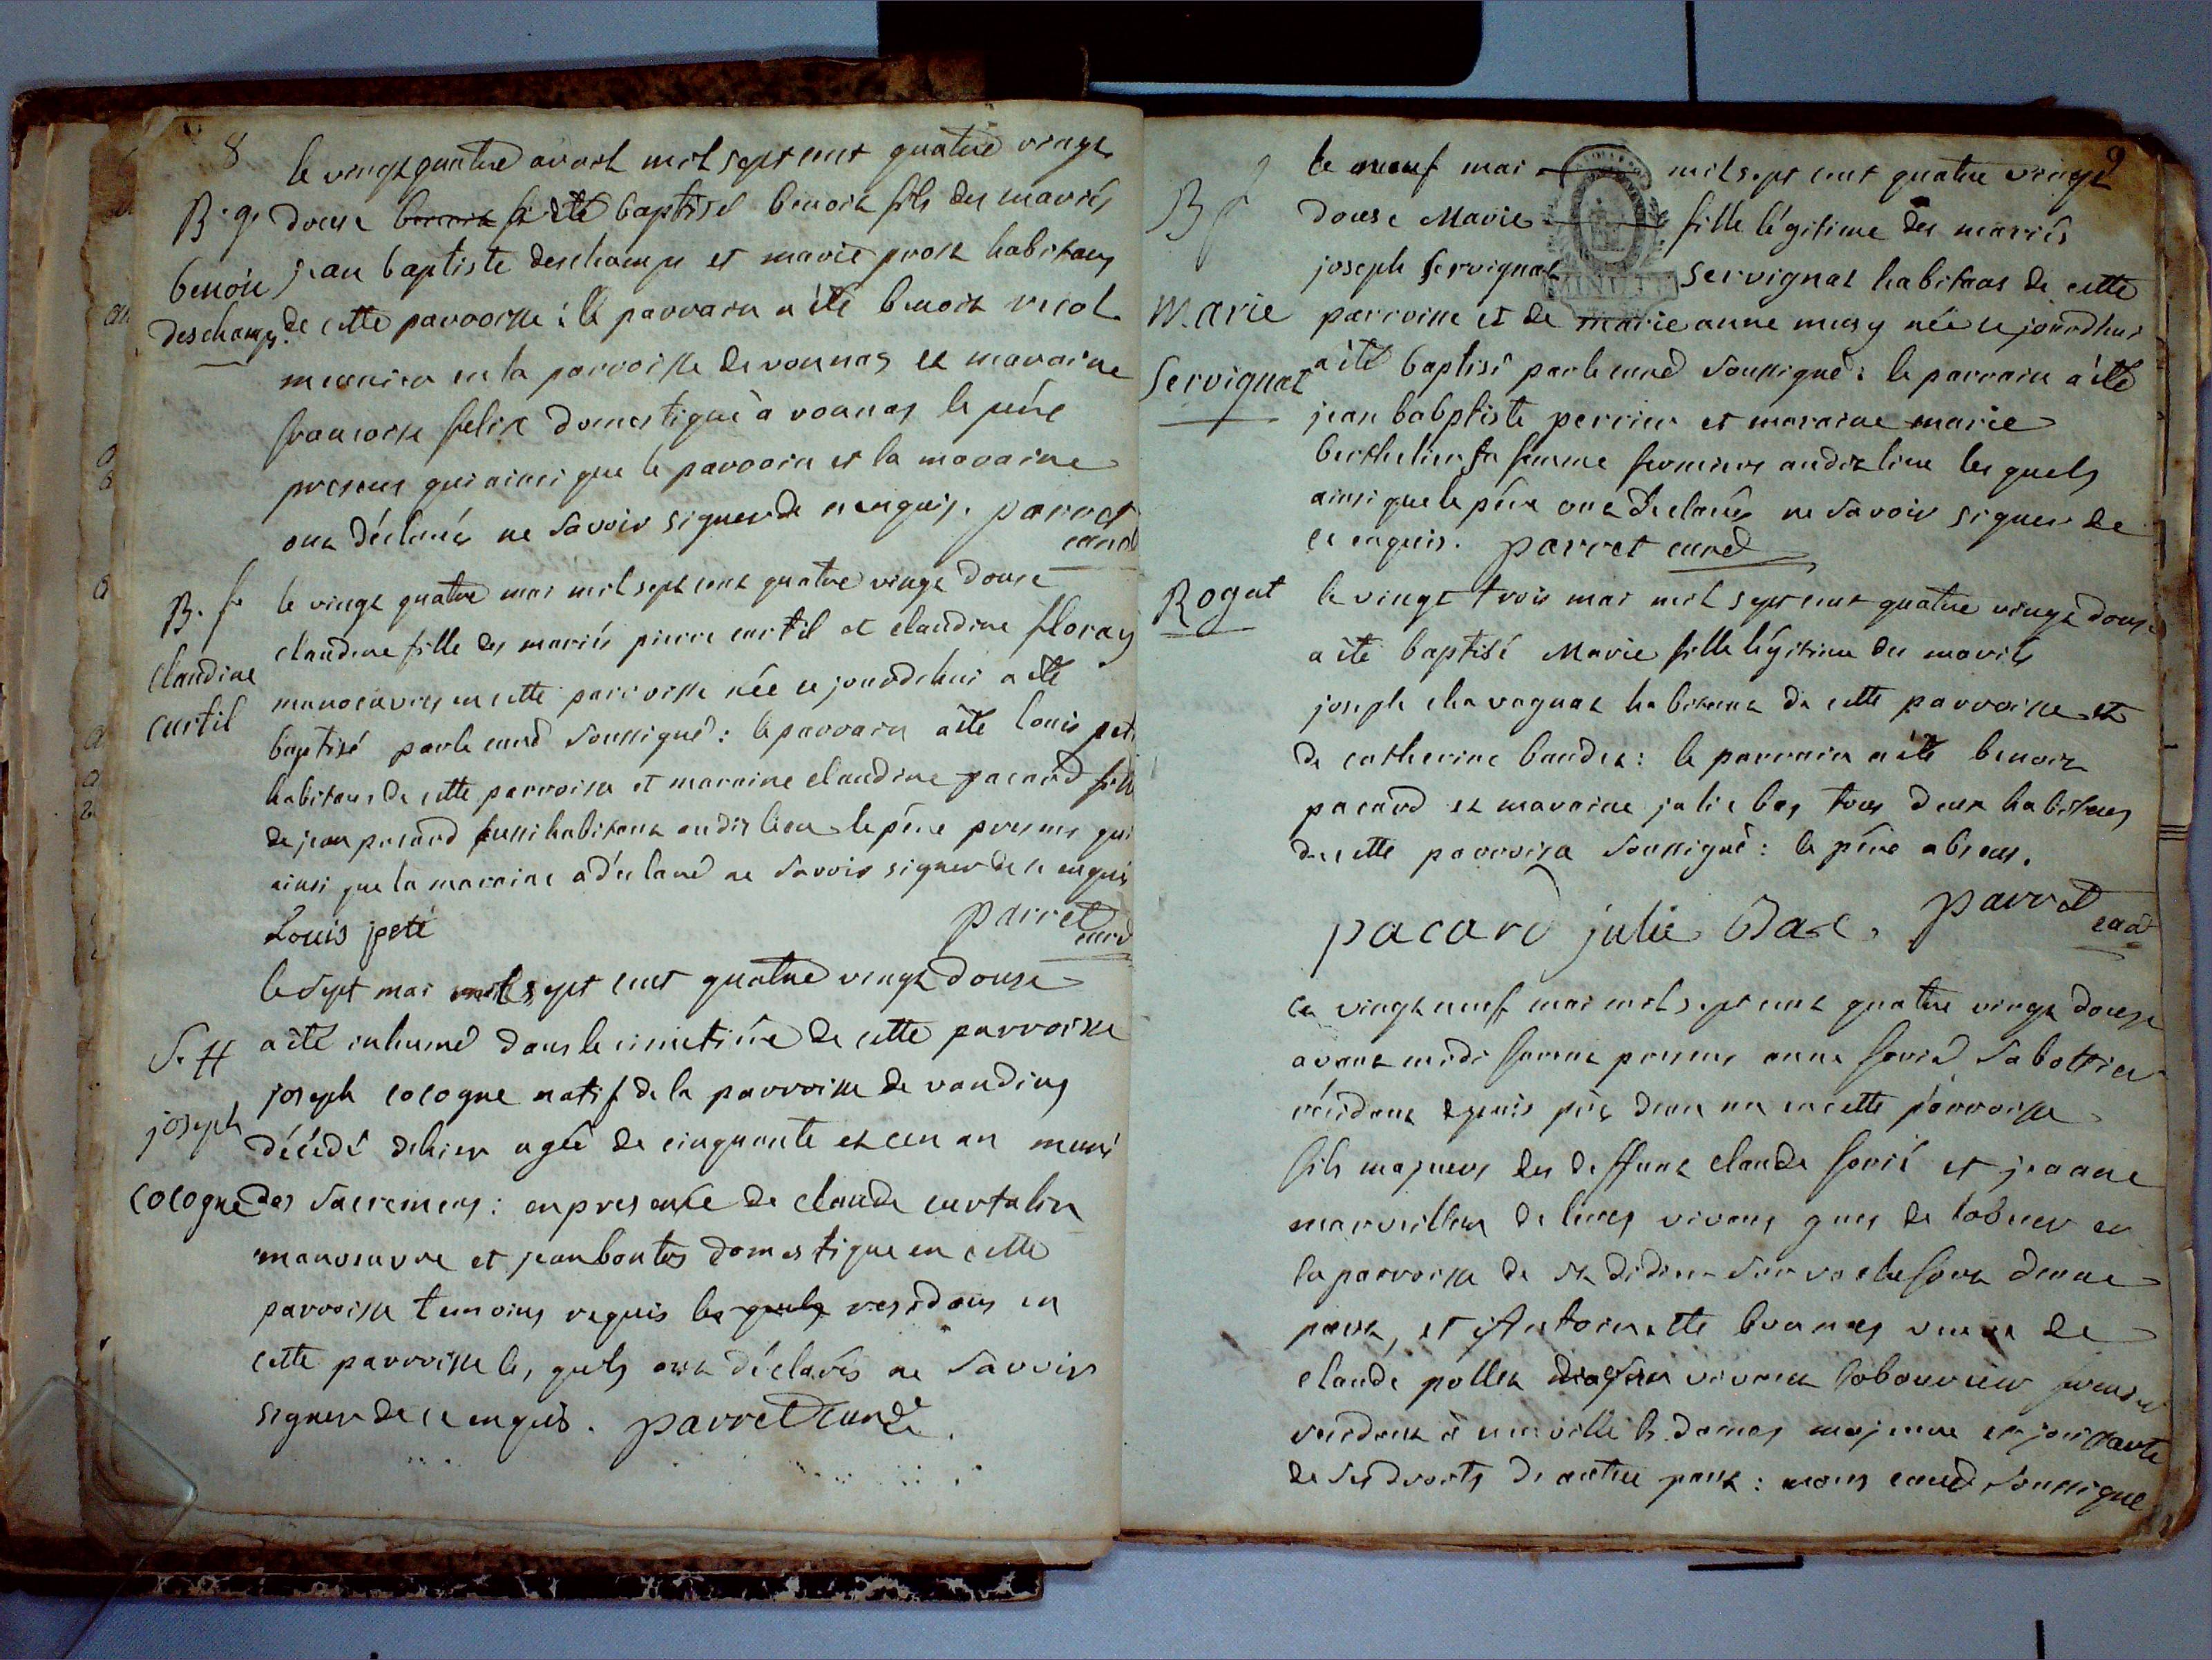 8
le vingt quatre avril mil sept cent quatre vingt
B. g. douse benoit a été baptisé benoit fils des mariés
benoit jean baptiste deschamps et marie prost habitans
deschamps. de cette parroisse : le parrain a été benoit
meunier en la parroisse de vonnas et maraine
francoise felix domestique à vonnas le père
present qui ainsi que le parrain et la maraine
ont déclarés ne savoir signer de ce enquis. parret
curé
B. f. le vingt quatre mai mil sept cent quatre vingt douse
claudine fille des mariés pierre curtil et claudine floray
Claudine
manoeuvres en cette parroisse née ce jourdehui a été
curtil
baptisé par le curé soussigné : le parrain a été louis peté
habitant de cette parroisse et maraine claudine pacard fille
de jean pacard aussi habitant audit lieu le père present qui
ainsi que la maraine a déclaré ne savoir signer de ce enquis
Louis peté parret
curé
le sept mai mil sept cent quatre vingt douse
S. H a été inhumé dans le cimetière de cette parroisse
joseph cologne natif de la parroisse de vandins
joseph
décédé dehier agée de cinquante et un an muni
cologne des sacremens : en presence de claude curtalin
manoeuvre et jean bontés domestique en cette
parroisse temoins requis les quels residans en
cette parroisse les quels ont déclarés ne savoir
signer de ce enquis. parret curé.
9
le neuf mai mil sept cent quatre vingt
B f douse Marie fille légitime des mariés
joseph servignat servignat habitans de cette
Marie parroisse et de marie anne musy née ce jourdhui
Servignat a été baptisé par le curé soussigné : le parrain a été
jean babptiste perrier et maraine marie
berthelier sa femme fermiers audit lieu les quels
ainsi que le père ont déclarés ne savoir signer de
ce enquis. parret curé
Rogat le vingt trois mai mil sept cent quatre vingt douse
a été baptisé Marie fille légitime des mariés
joseph chavagnat habitant de cette parroisse et
de catherine baudet : le parrain a été benoit
pacard et maraine julie bas tous deux habitans
de cette parroisse soussigné : le père absent.
pacard julie Bae. parret
curé
le vingt neuf mai mil sept cent quatre vingt douse
avant midi furent presens sabottier
résidant depuis près dun an en cette parroisse
fils majeur des deffunt claude et jeanne
de leurs vivans de en
la parroisse de st didier sur chalaronne dune
part, et Antoinette veuve de
claude pollet vivant laboureur
residant à neuville les dames majeure et jouissante
de ses droits de autre part : nous curé soussigné